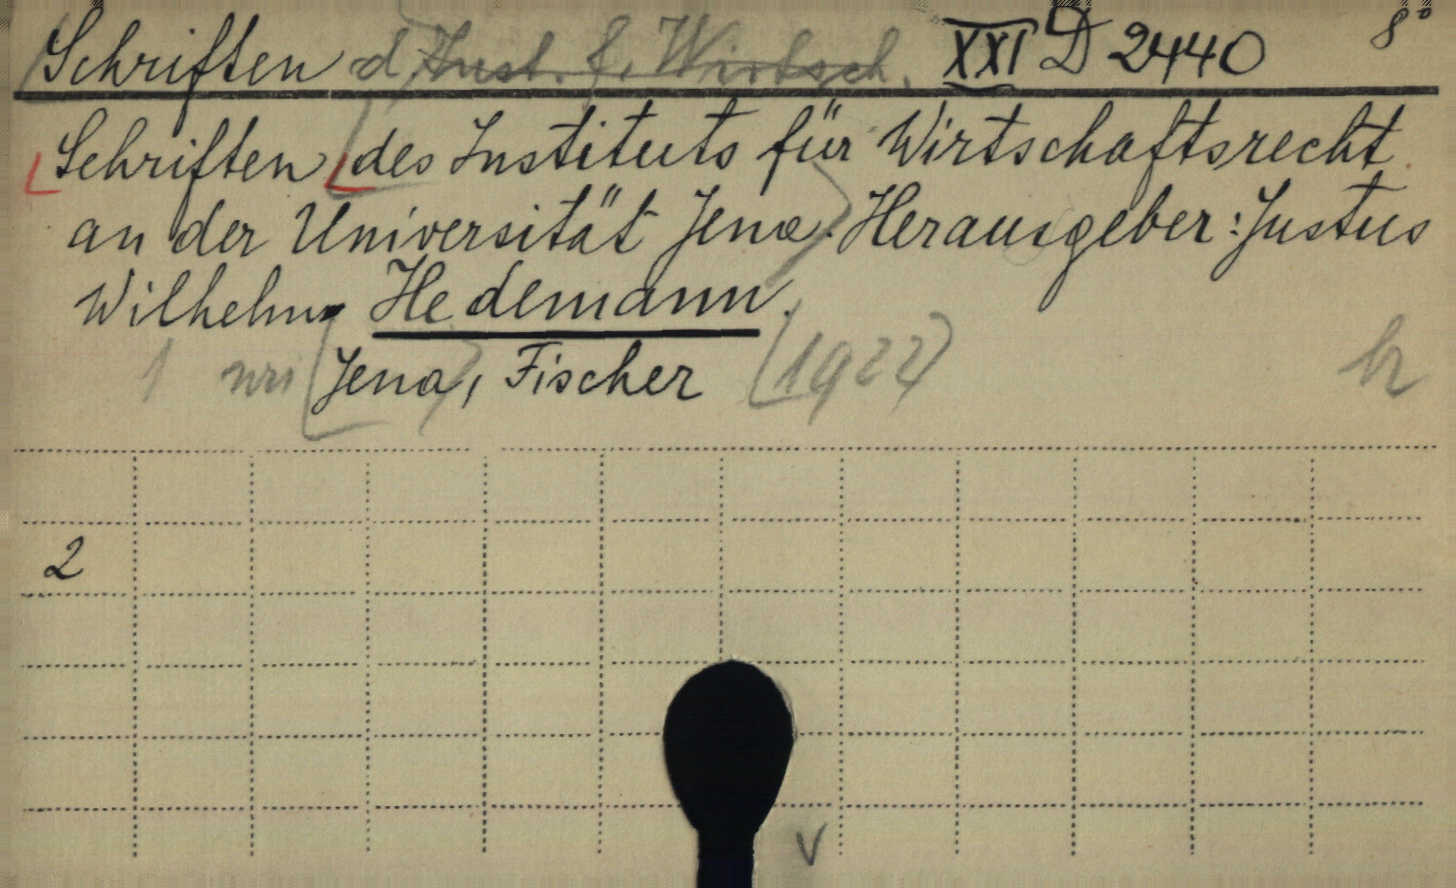 Schriften d. Inst. f. Wirtsch. XXI D 2440 8°
Schriften des Instituts für Wirtschaftsrecht
an der Universität Jena. Herausgeber: Justus
Wilhelm Hedemann.
Jena, Fischer [1922]
2
v